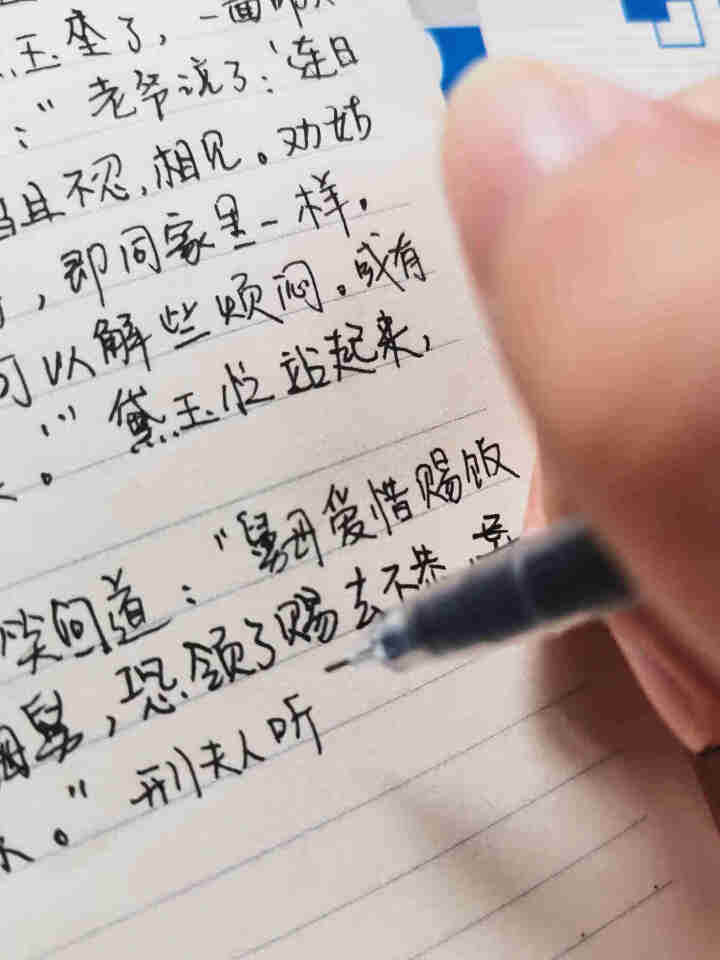 玉坐了,一面
:"老爷说了:'连日
且不忍相见。劝姑
,即同家里一样。
可以解些烦闷。或有
。'"黛玉忙站起来,
笑回道:"舅母爱惜赐饭
舅,恐领了赐去不恭,
。"刑夫人听